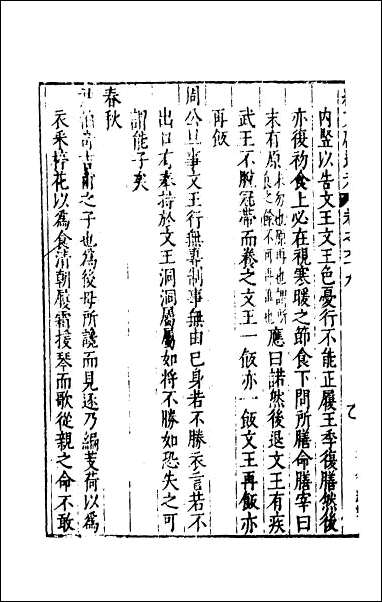 内豎以告文王文王色憂行不能正履王季復膳然後
亦復初食上必在視寒暖之節食下問所膳命膳宰曰
末有原末勿也原再也謂所食之餘不可再進也應曰諾然後退文王有疾
武王不脫冠帶而養之文王一飯亦一飯文王再飯亦
再飯
周公旦事文王行無專制事無由已身若不勝衣言若不
出口有奉持於文王洞洞屬屬如將不勝如恐失之可
謂能子矣
春秋
伯奇吉甫之子也為後母所讒而見逐乃編芰荷以為
衣采梓花以為食清朝履霜援琴而歌從親之命不敢